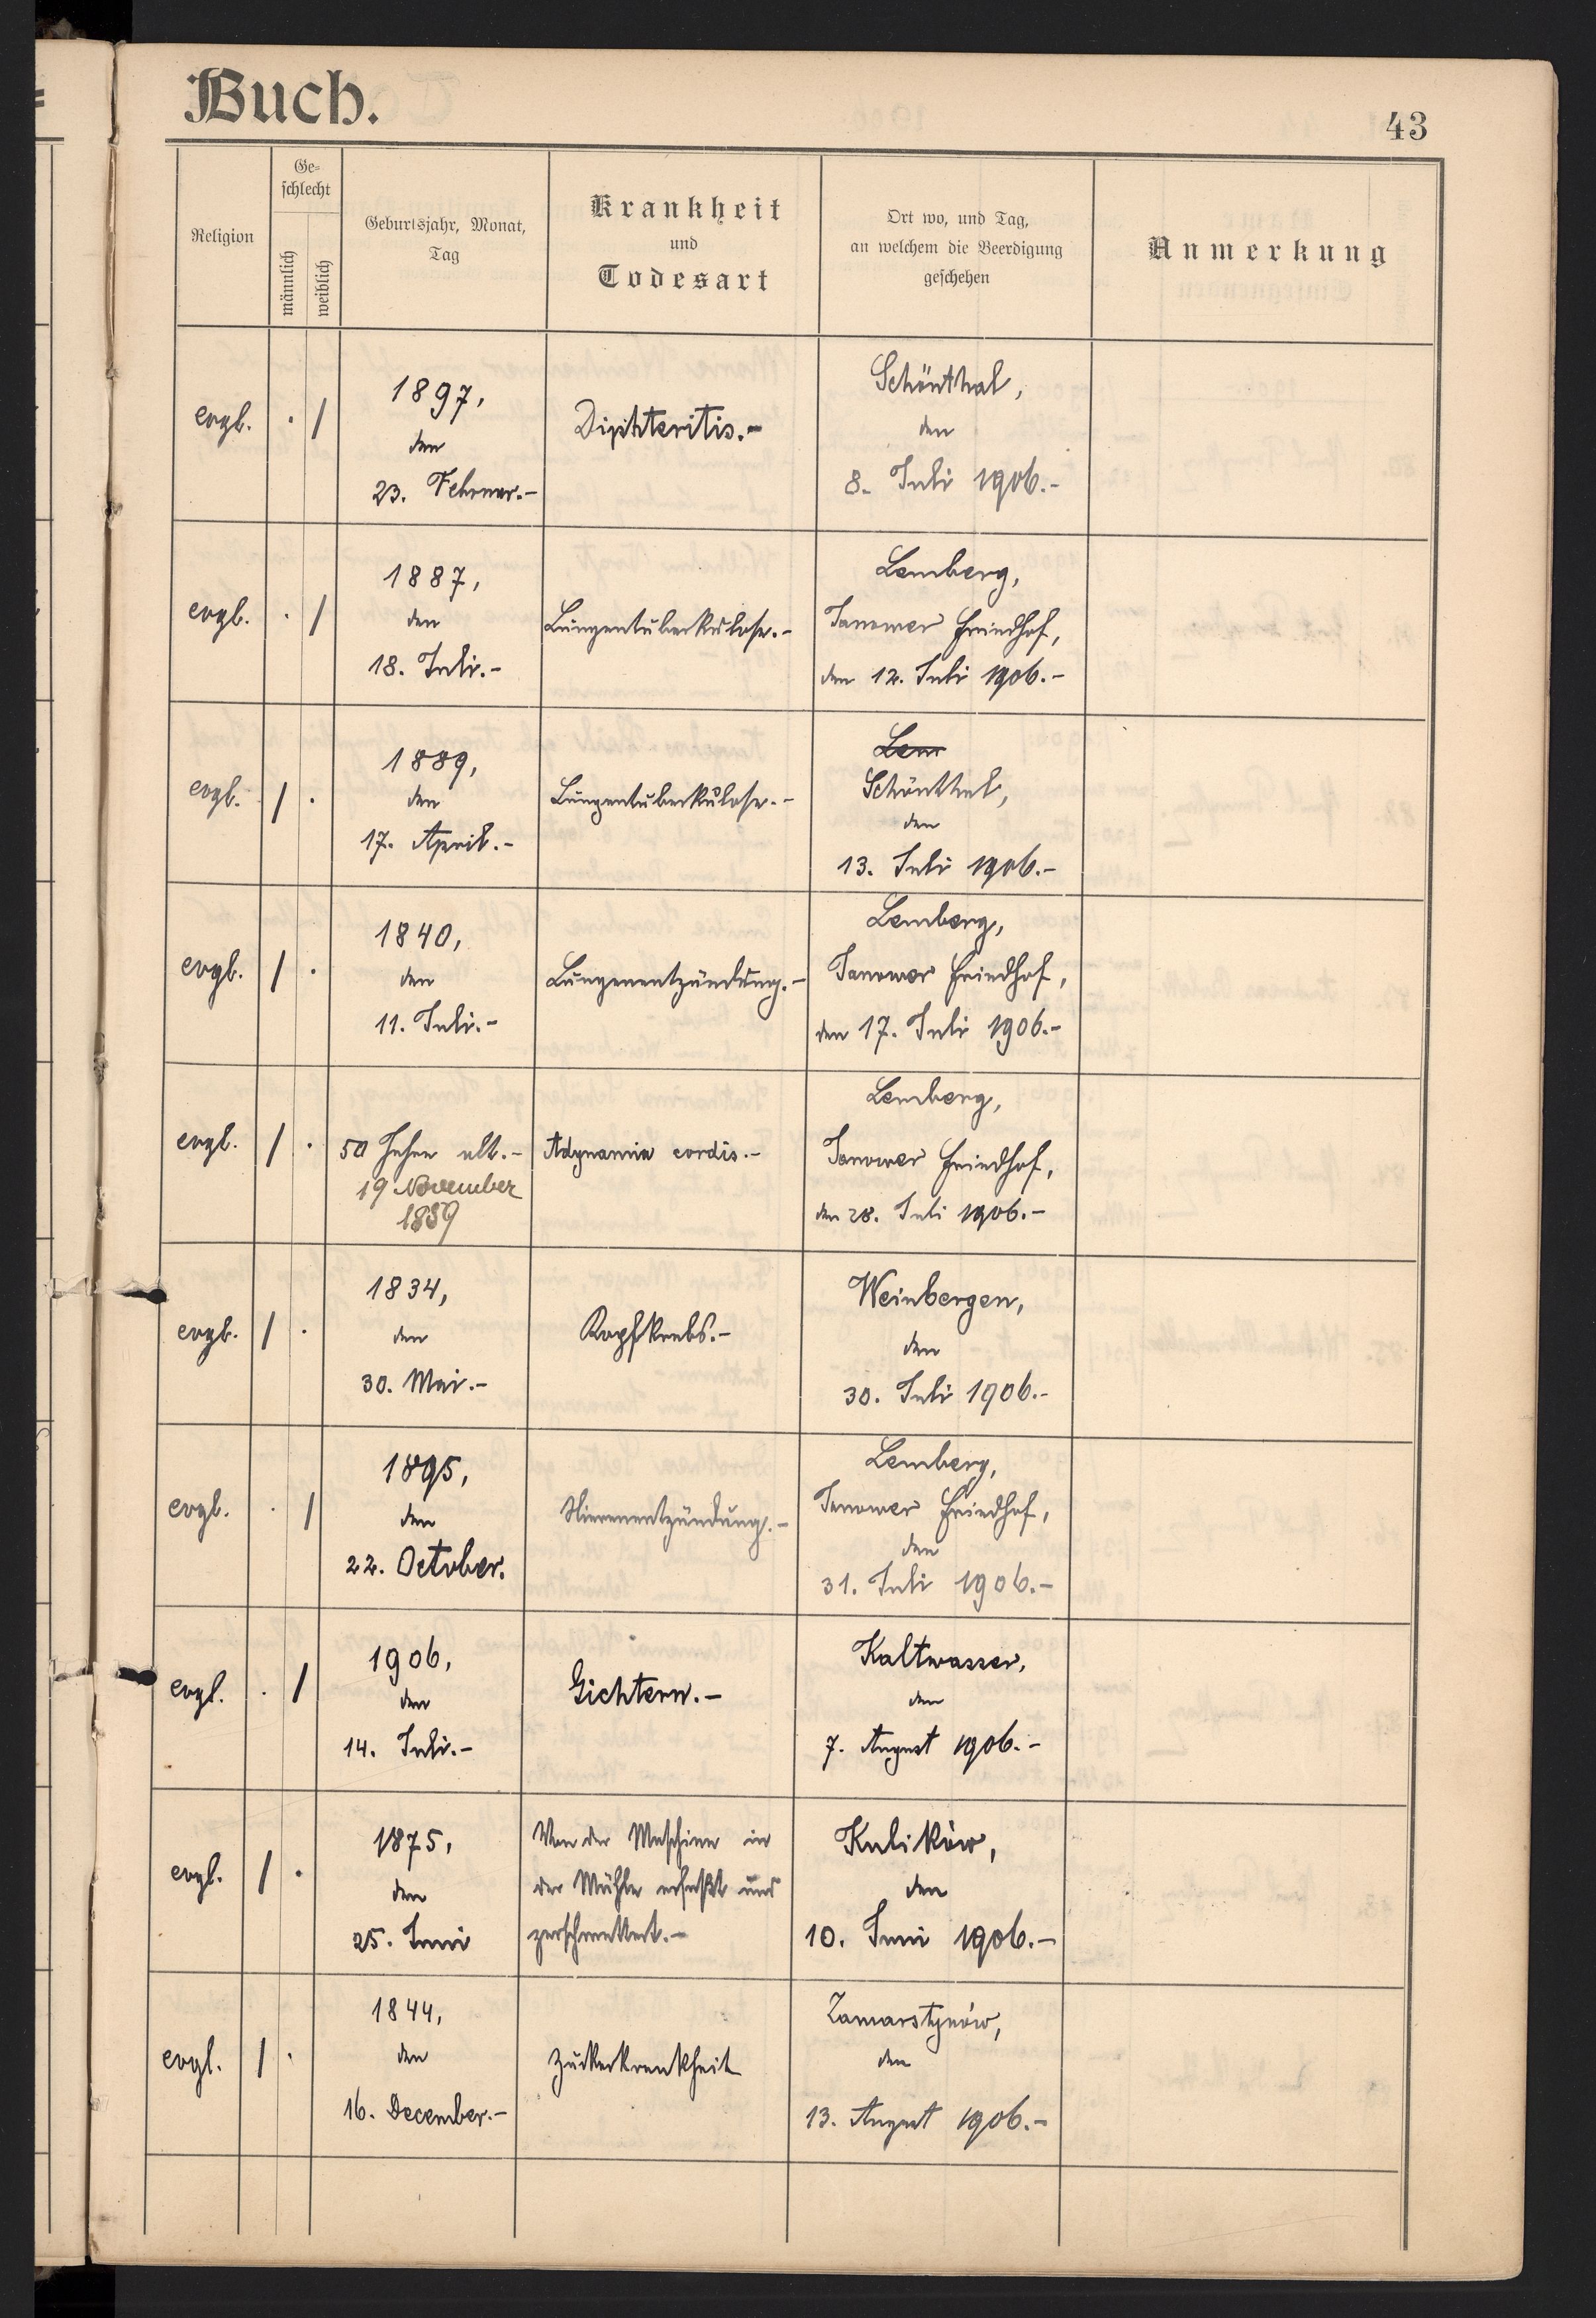 Buch.
43
Religion
Ge-
schlecht
männlich
weiblich
Geburtsjahr, Monat,
Tag
Krankheit
und
Todesart
Ort wo, und Tag,
an welchem die Beerdigung
geschehen
Anmerkung
evgl. · /
1897,
den
23. Februar.-
Diphteritis.-
Schönthal,
den
8. Juli 1906.-
evgl. · /
1887,
den
18. Juli.-
Lungentuberkulose.-
Lemberg,
Janower Friedhof,
den 12. Juli 1906.-
evgl. / ·
1889,
den
17. April.-
Lungentuberkulose.-
Lem
Schönthal,
den
13. Juli 1906.-
evgl. / ·
1840,
den
11. Juli.-
Lungenentzündung.-
Lemberg,
Janower Friedhof,
den 17. Juli 1906.-
evgl. / ·
50 Jahre alt.-
19 November
1859
Adynamia cordis.-
Lemberg,
Janower Friedhof,
den 28. Juli 1906.-
evgl. / ·
1834,
den
30. Mai.-
Kopfkrebs.-
Weinbergen,
den
30. Juli 1906.-
evgl. · /
1895,
den
22. October.
Nierenentzündung.-
Lemberg,
Janower Friedhof,
den
31. Juli 1906.-
evgl. · /
1906,
den
14. Juli.-
Gichtern.-
Kaltwasser,
den
7. August 1906.-
evgl. / ·
1875,
den
25. Juni
Von der Maschine in
der Mühle erfaßt und
zerschmettert.-
Kulików,
den
10. Juni 1906.-
evgl. / ·
1844,
den
16. December.-
Zuckerkrankheit
Zamarstynów,
den
13. August 1906.-